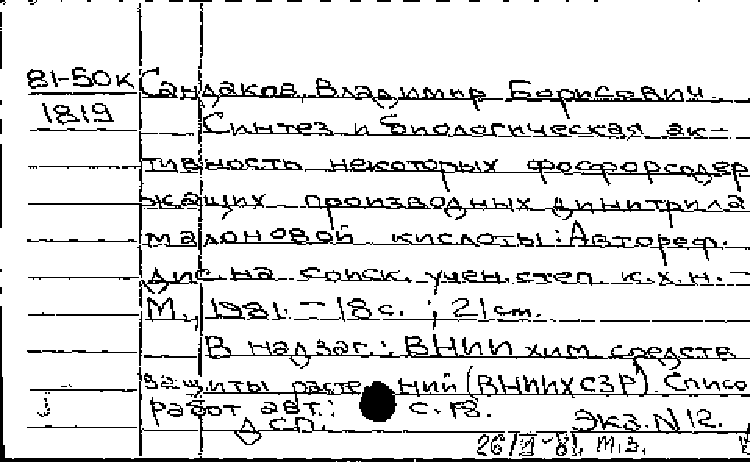 81-50к Сандаков, Владимир Борисович.
1819
Синтез и биологическая ак-
тивность некоторых фосфорсодер
жащих производных динитрила
малоновой кислоты: Автореф.
дис. на соиск. учен. степ. к.х.н. –
М., 1981. – 18 с. ; 21 см.
В надзаг.: ВНИИ хим. средств
защиты растений (ВНИИХСЗР). Списо
работ авт.: с. 18.
ДСП. Экз. N 12.
81, т.з.